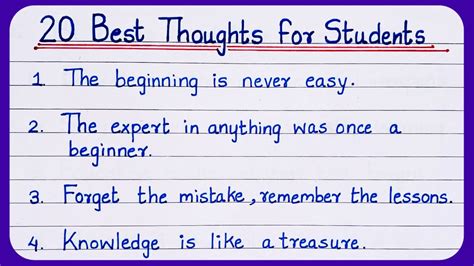 20 Best Thoughts for Students
1. The beginning is never easy.
2. The expert in anything was once a
beginner.
3. Forget the mistake, remember the lessons.
4. Knowledge is like a treasure.